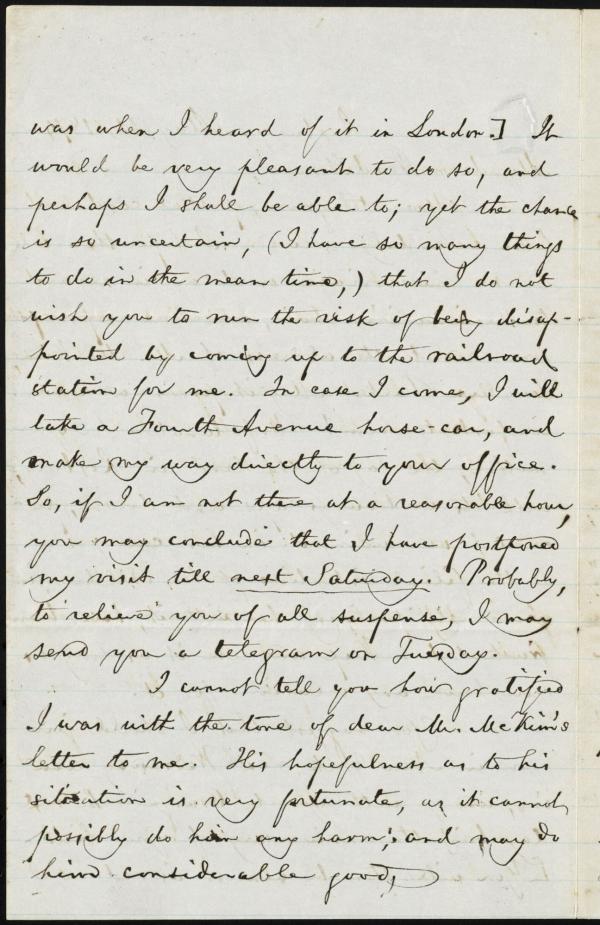 was when I heard of it in London.] It
would be very pleasant to do so, and
perhaps I shall be able to; yet the chance
is so uncertain, (I have so many things
to do in the mean time,) that I do not
wish you to run the risk of being disap-
pointed by coming up to the railroad
station for me. In case I come, I will
take a Fourth Avenue horse-car, and
make my way directly to your office.
So, if I am not there at a reasonable hour,
you may conclude that I have postponed
my visit till next Saturday. Probably,
to relieve you of all suspense, I may
send you a telegram on Tuesday.
I cannot tell you how gratified
I was with the tone of dear Mr. McKim's
letter to me. His hopefulness as to his
situation is very fortunate, as it cannot
possibly do him any harm; and may do
him considerable good,